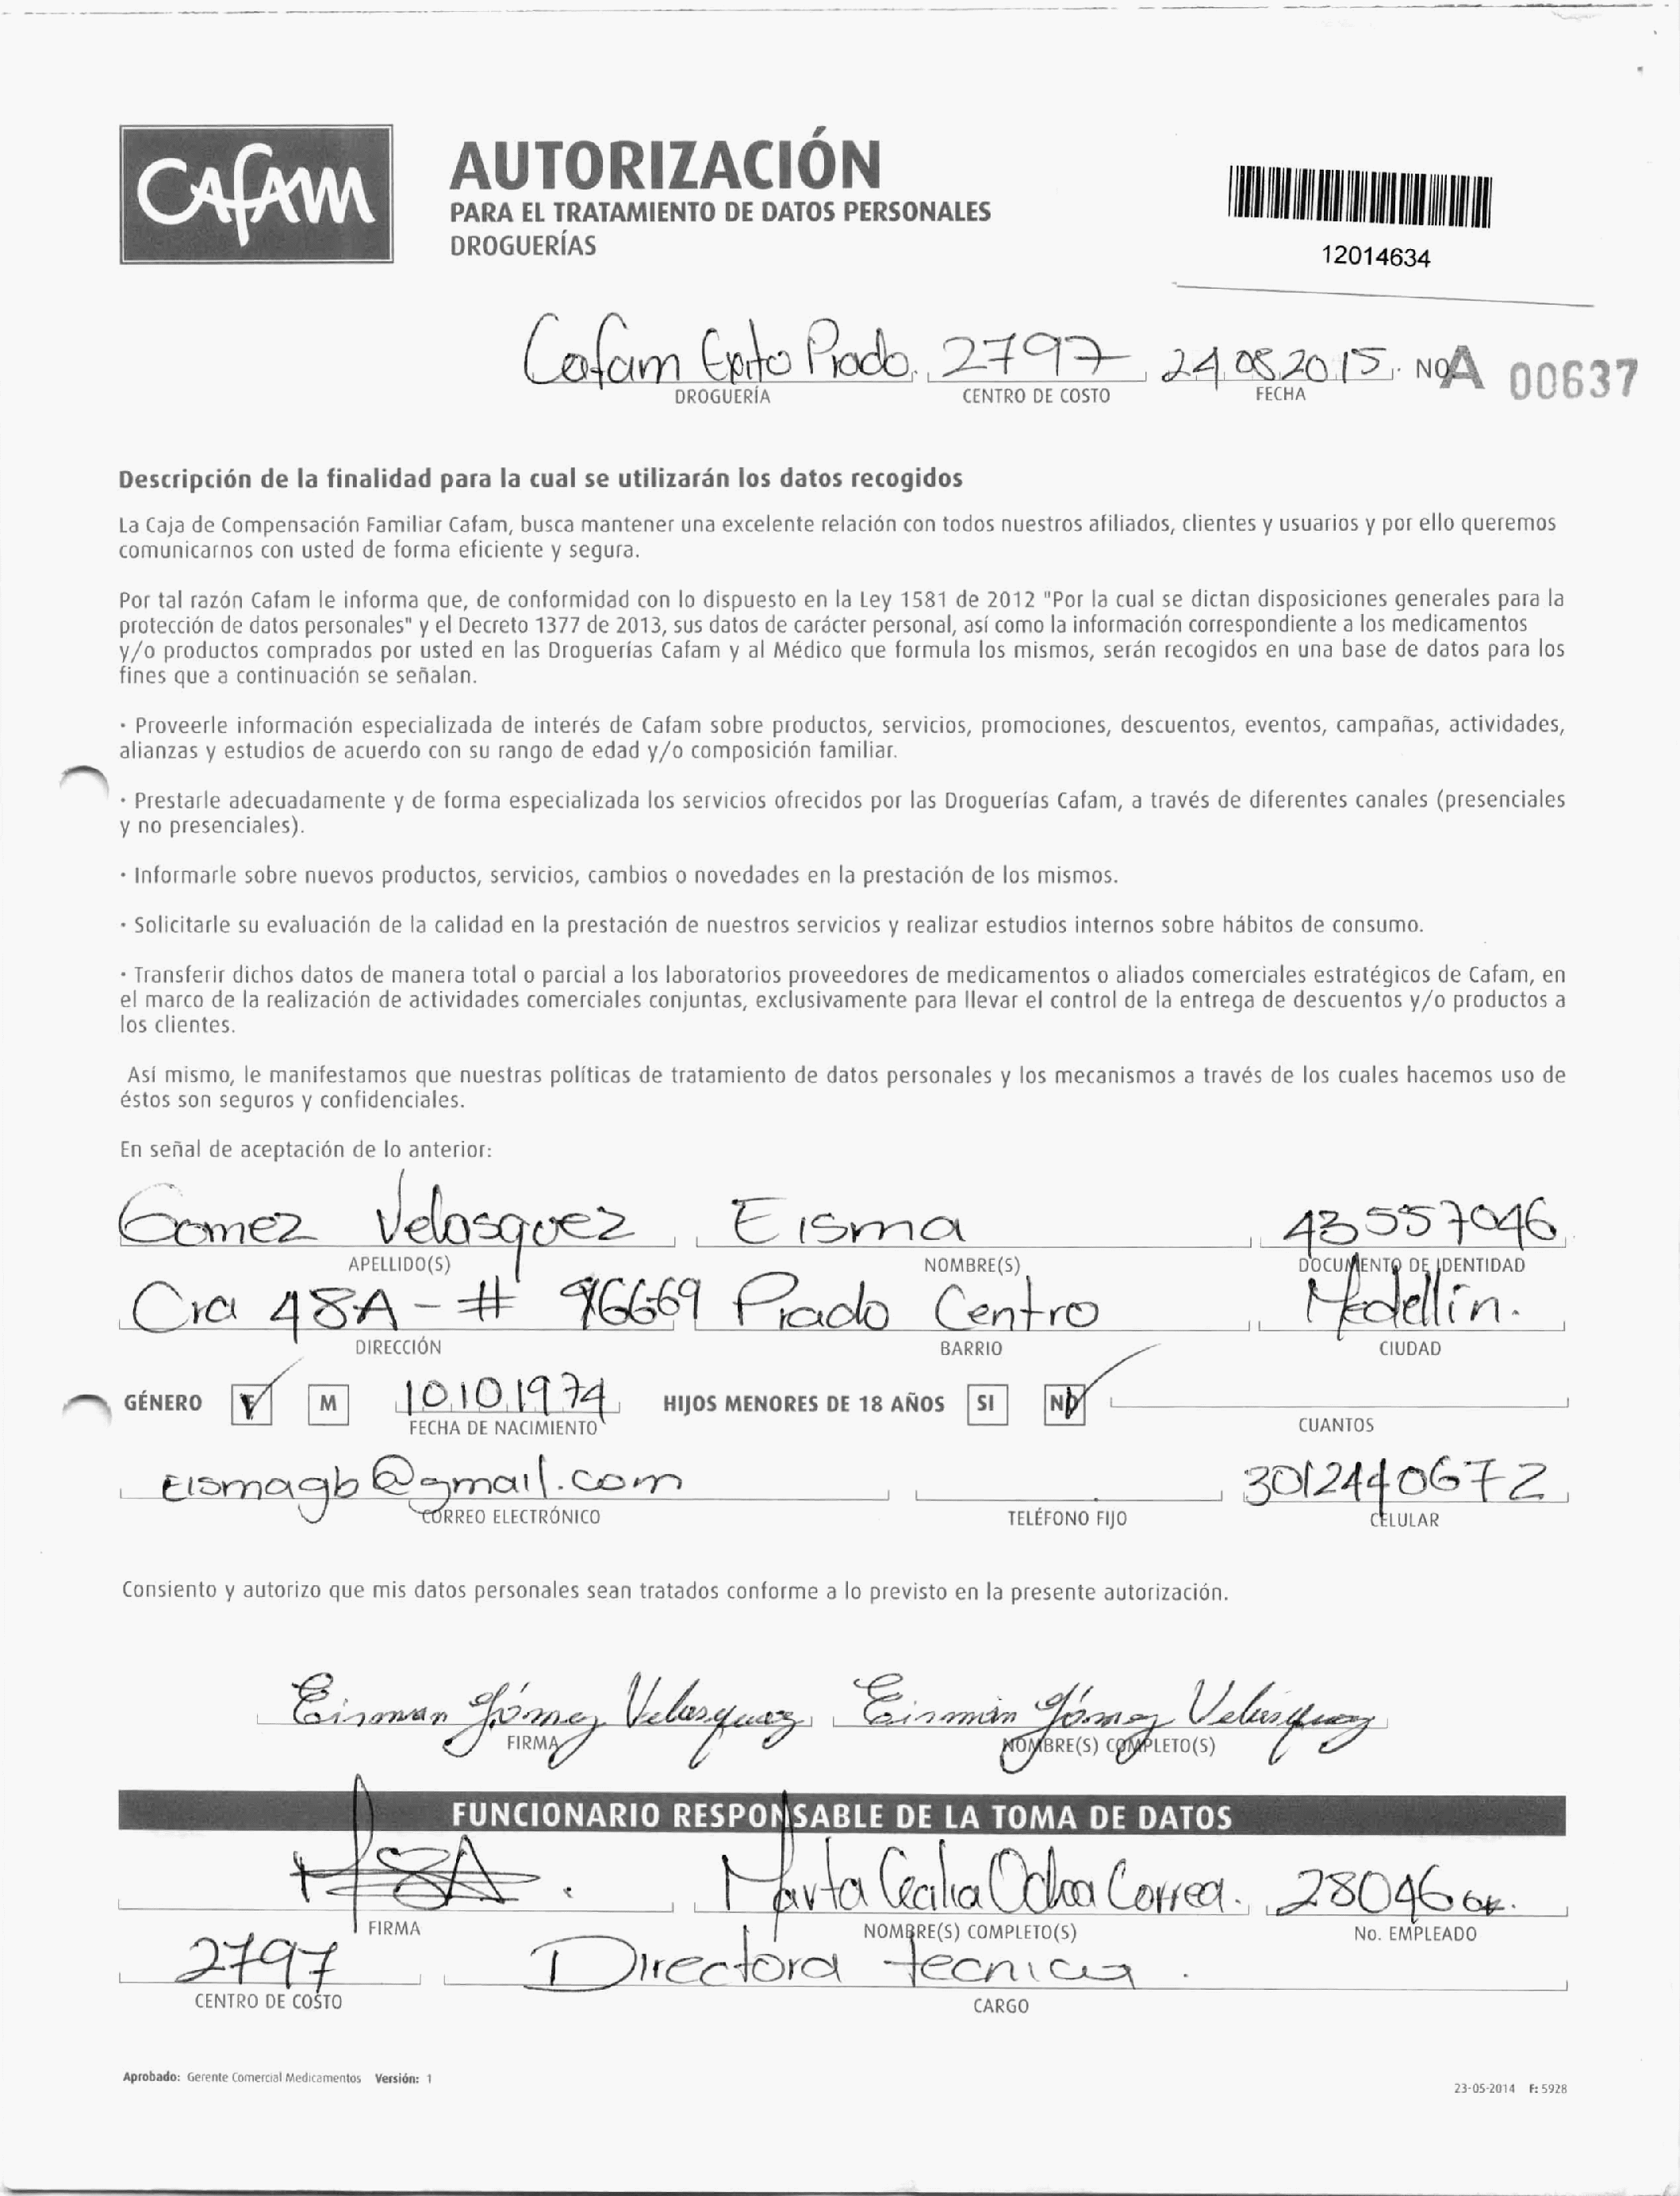 CAFAM
AUTORIZACIÓN
PARA EL TRATAMIENTO DE DATOS PERSONALES
DROGUERÍAS
12014634
Cafam Epto Prado. 2797 24 08 2015. NO A 00637
DROGUERÍA CENTRO DE COSTO FECHA
Descripción de la finalidad para la cual se utilizarán los datos recogidos
La Caja de Compensación Familiar Cafam, busca mantener una excelente relación con todos nuestros afiliados, clientes y usuarios y por ello queremos
comunicarnos con usted de forma eficiente y segura.
Por tal razón Cafam le informa que, de conformidad con lo dispuesto en la Ley 1581 de 2012 "Por la cual se dictan disposiciones generales para la
protección de datos personales" y el Decreto 1377 de 2013, sus datos de carácter personal, así como la información correspondiente a los medicamentos
y/o productos comprados por usted en las Droguerías Cafam y al Médico que formula los mismos, serán recogidos en una base de datos para los
fines que a continuación se señalan.
· Proveerle información especializada de interés de Cafam sobre productos, servicios, promociones, descuentos, eventos, campañas, actividades,
alianzas y estudios de acuerdo con su rango de edad y/o composición familiar.
· Prestarle adecuadamente y de forma especializada los servicios ofrecidos por las Droguerías Cafam, a través de diferentes canales (presenciales
y no presenciales).
· Informarle sobre nuevos productos, servicios, cambios o novedades en la prestación de los mismos.
· Solicitarle su evaluación de la calidad en la prestación de nuestros servicios y realizar estudios internos sobre hábitos de consumo.
· Transferir dichos datos de manera total o parcial a los laboratorios proveedores de medicamentos o aliados comerciales estratégicos de Cafam, en
el marco de la realización de actividades comerciales conjuntas, exclusivamente para llevar el control de la entrega de descuentos y/o productos a
los clientes.
Así mismo, le manifestamos que nuestras políticas de tratamiento de datos personales y los mecanismos a través de los cuales hacemos uso de
éstos son seguros y confidenciales.
En señal de aceptación de lo anterior:
Gomez Velasquez Eisma 43557046
APELLIDO(S) NOMBRE(S) DOCUMENTO DE IDENTIDAD
Cra 48A - # 6669 Prado Centro Medellín.
DIRECCIÓN BARRIO CIUDAD
GÉNERO F M 10 10 1974 HIJOS MENORES DE 18 AÑOS SI NO
FECHA DE NACIMIENTO CUANTOS
Eismagb@gmail.com 3012440672
CORREO ELECTRÓNICO TELÉFONO FIJO CELULAR
Consiento y autorizo que mis datos personales sean tratados conforme a lo previsto en la presente autorización.
Eisman Gómez Velasquez Eisman Gómez Velásquez
FIRMA NOMBRE(S) COMPLETO(S)
FUNCIONARIO RESPONSABLE DE LA TOMA DE DATOS
Marta Cecilia Ochoa Correa. 28046
FIRMA NOMBRE(S) COMPLETO(S) No. EMPLEADO
2797 Directora tecnica.
CENTRO DE COSTO CARGO
Aprobado: Gerente Comercial Medicamentos Versión: 1
23-05-2014 F: 5928